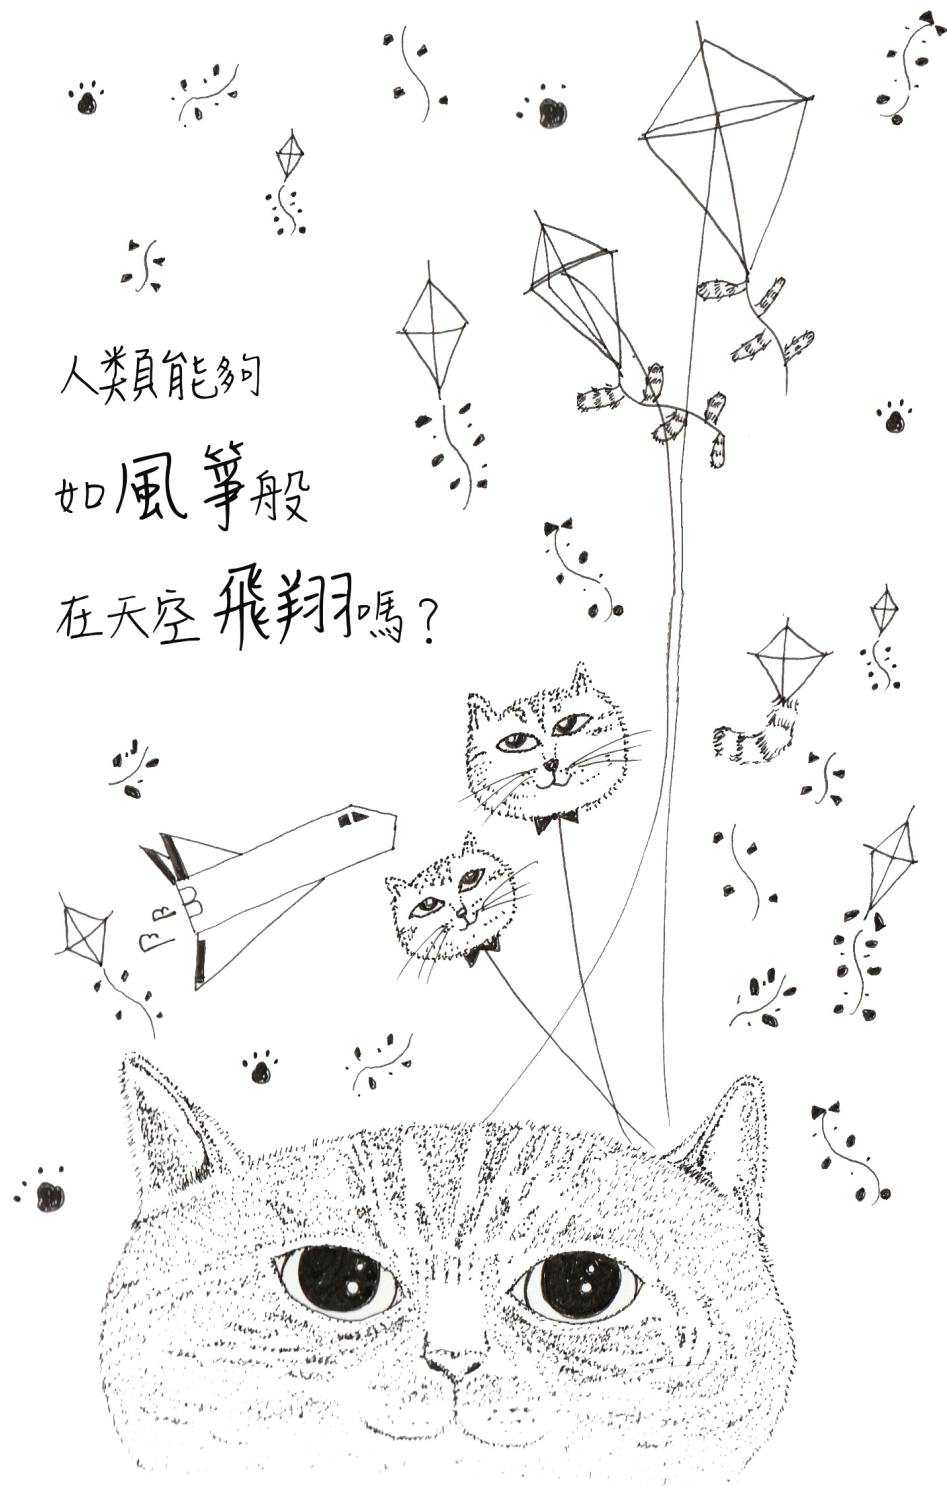 人類能夠
如風箏般
在天空飛翔嗎？